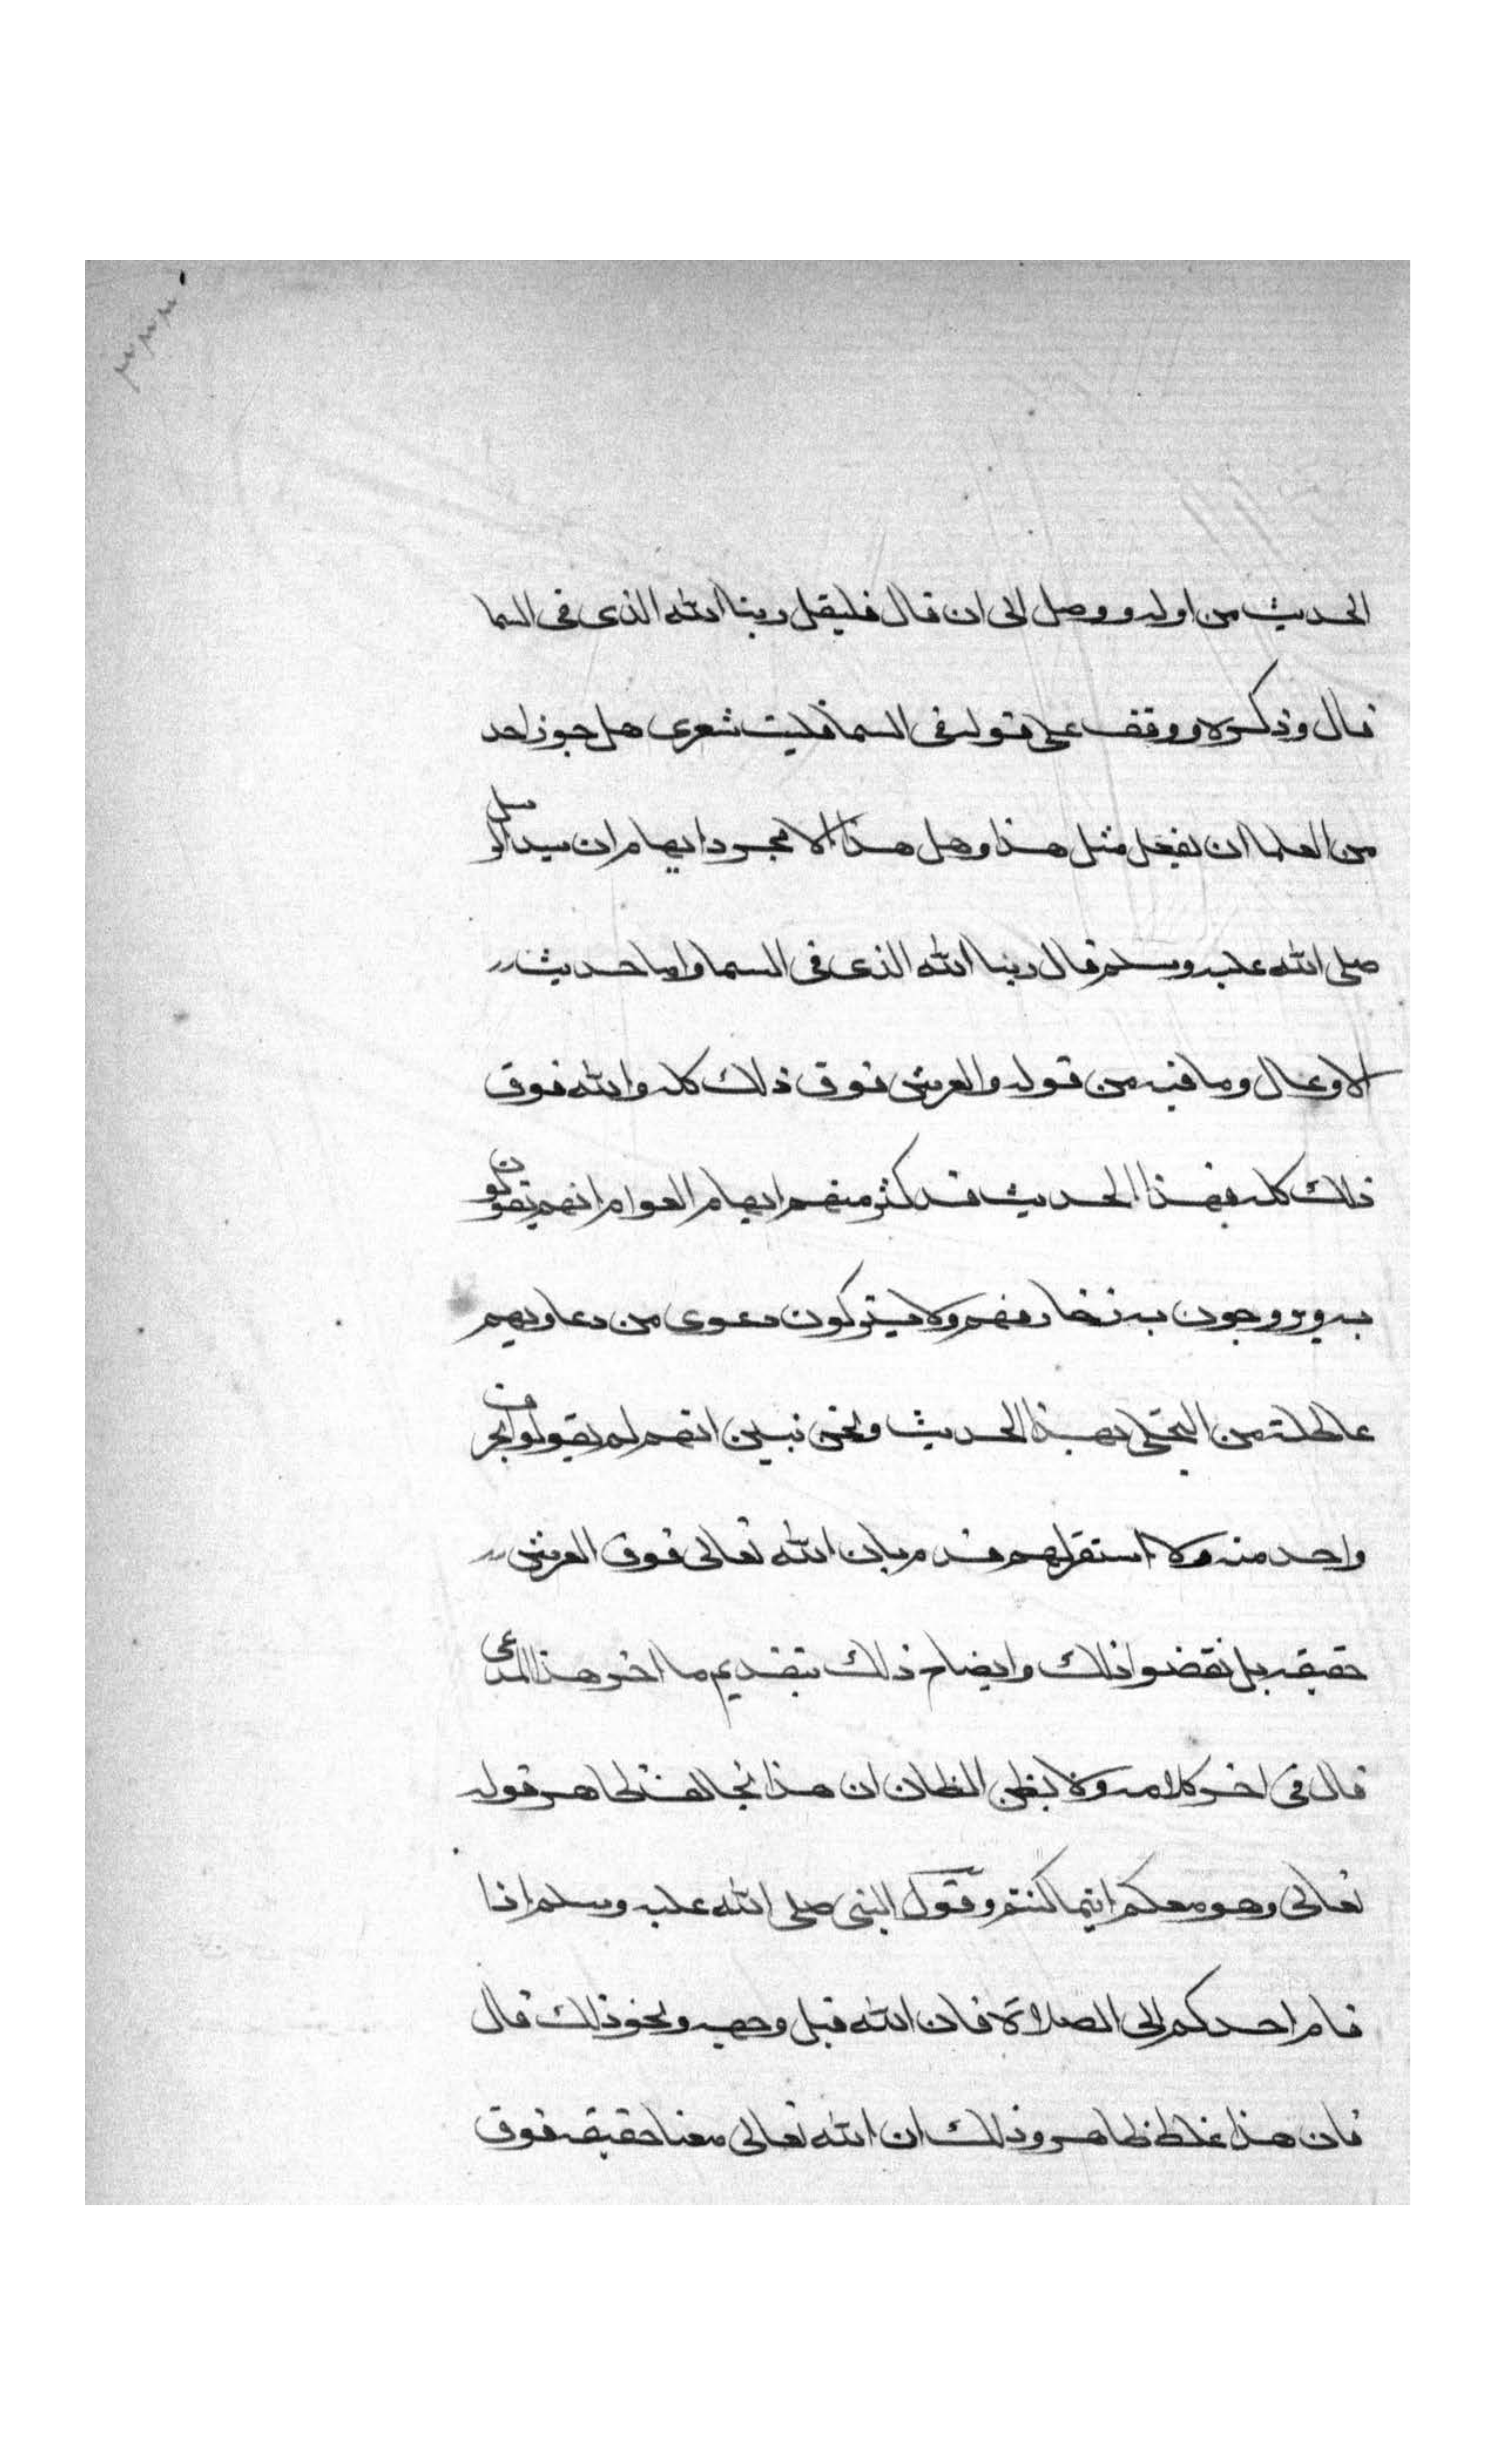 الحديث من اوله ووصل الى ان قال فليقل ربنا الله الذى فى السما
قال وذكره ووقف على قوله فى السما فليت شعرى هل جوز احد
من العلما ان يفعل مثل هذا وهل هذا الا مجرد ايهام ان سيد الرسل
صلى الله عليه وسلم قال ربنا الله الذى فى السما واما حديث
الاوعال وما فيه من قوله والعرش فوق ذلك كله والله فوق
ذلك كله فهذا الحديث قد كثر منهم ايهام العوام انهم يقولون
به ويروجون به زخارفهم ولا يتركون دعوى من دعاويهم
عاطلة من التحلى بهذا الحديث ونحن نبين انهم لم يقولوا بحرف
واحد منه ولا استقر لهم قدم بان الله تعالى فوق العرش
حقيقه بل نقضوا ذلك وايضاح ذلك بتقديم ما اخر هذا المدعى
قال فى اخر كلامه ولا يظن الظان ان هذا يخالف ظاهر قوله
تعالى وهو معكم اينما كنتم وقول النبى صلى الله عليه وسلم اذا
قام احدكم الى الصلاة فان الله قبل وجهه ونحو ذلك قال
فان هذا غلط ظاهر وذلك ان الله تعالى معنا حقيقه فوق